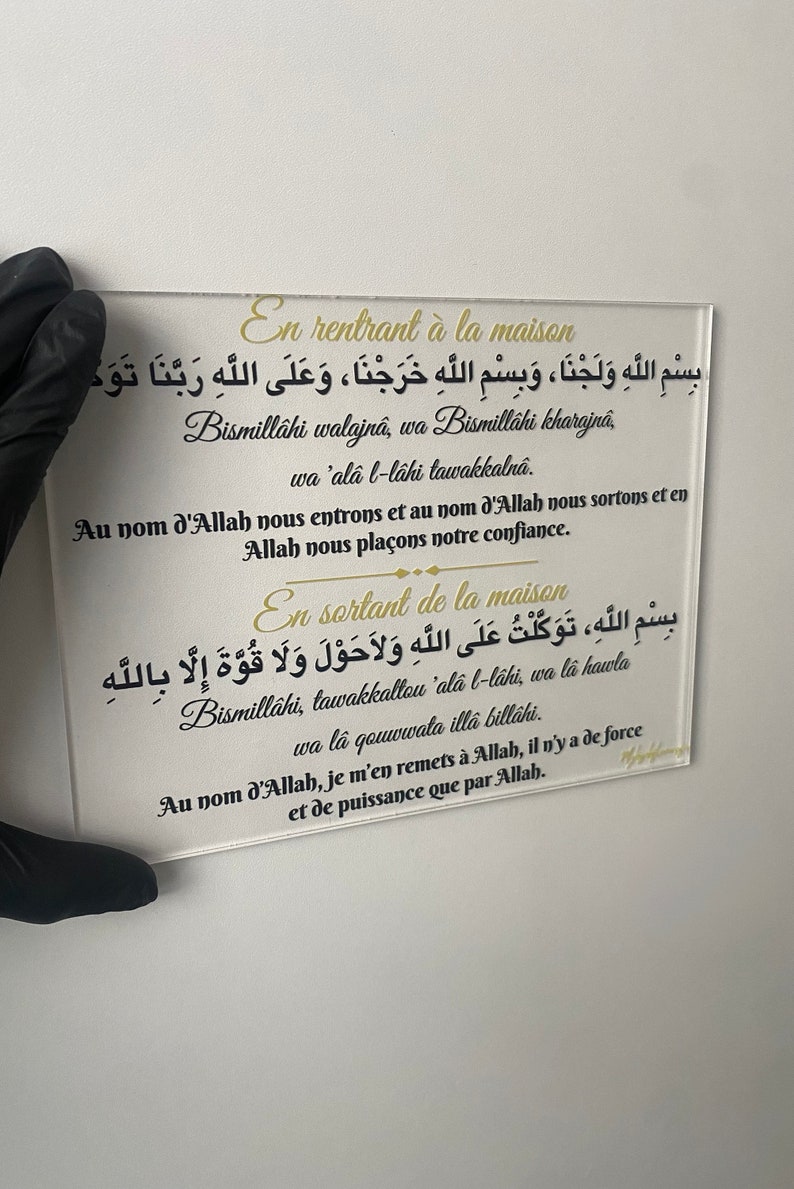 En rentrant à la maison
بِسْمِ اللَّهِ وَلَجْنَا، وَبِسْمِ اللَّهِ خَرَجْنَا، وَعَلَى اللَّهِ رَبَّنَا
Bismillâhi walajnâ, wa Bismillâhi kharajnâ,
wa 'alâ l-lâhi tawakkalnâ.
Au nom d'Allah nous entrons et au nom d'Allah nous sortons et en
Allah nous plaçons notre confiance.
En sortant de la maison
بِسْمِ اللَّهِ، تَوَكَّلْتُ عَلَى اللَّهِ وَلاَحَوْلَ وَلَا قُوَّةَ إِلَّا بِاللَّهِ
Bismillâhi, tawakkaltou 'alâ l-lâhi, wa lâ hawla
wa lâ qouwwata illâ billâhi.
Au nom d'Allah, je m'en remets à Allah, il n'y a de force
et de puissance que par Allah.